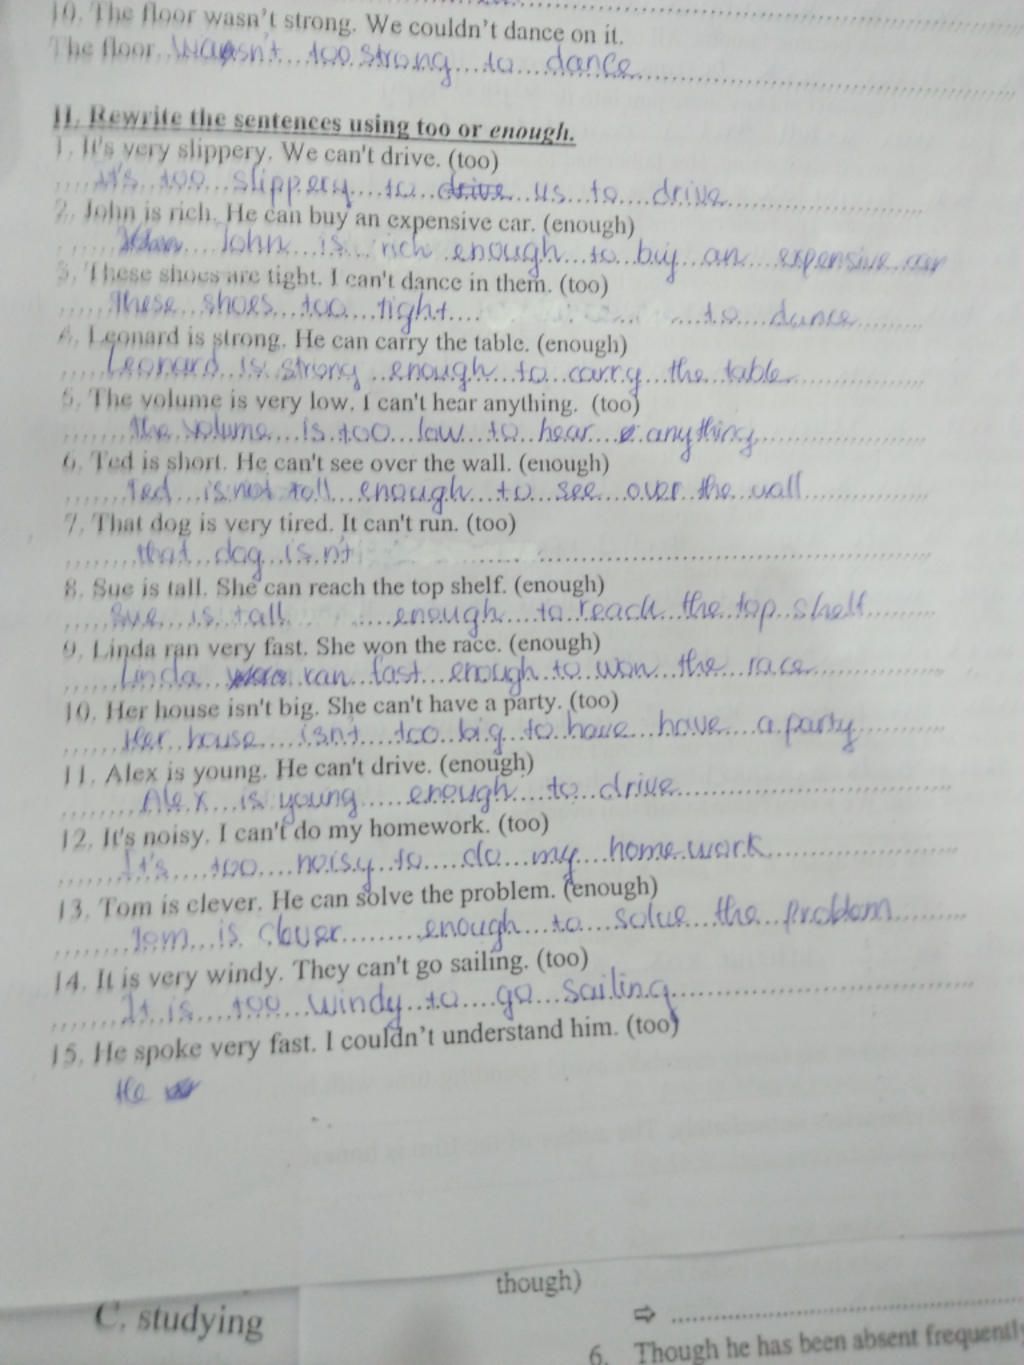 10. The floor wasn't strong. We couldn't dance on it.
The floor wasn't too strong to dance
II. Rewrite the sentences using too or enough.
1. It's very slippery. We can't drive. (too)
It's too slippery to drive us to drive
2. John is rich. He can buy an expensive car. (enough)
John is rich enough to buy an expensive car
3. These shoes are tight. I can't dance in them. (too)
These shoes too tight to dance
4. Leonard is strong. He can carry the table. (enough)
Leonard is strong enough to carry the table
5. The volume is very low. I can't hear anything. (too)
the volume is too low to hear anything
6. Ted is short. He can't see over the wall. (enough)
Ted is not tall enough to see over the wall
7. That dog is very tired. It can't run. (too)
that dog isn't
8. Sue is tall. She can reach the top shelf. (enough)
Sue is tall enough to reach the top shelf
9. Linda ran very fast. She won the race. (enough)
Linda ran fast enough to won the race
10. Her house isn't big. She can't have a party. (too)
Her house isn't too big to have have a party
11. Alex is young. He can't drive. (enough)
Alex is young enough to drive
12. It's noisy. I can't do my homework. (too)
It's too noisy to do my homework
13. Tom is clever. He can solve the problem. (enough)
Tom is clever enough to solve the problem
14. It is very windy. They can't go sailing. (too)
It is too windy to go sailing
15. He spoke very fast. I couldn't understand him. (too)
He
though)
C. studying
⇨
6. Though he has been absent frequently